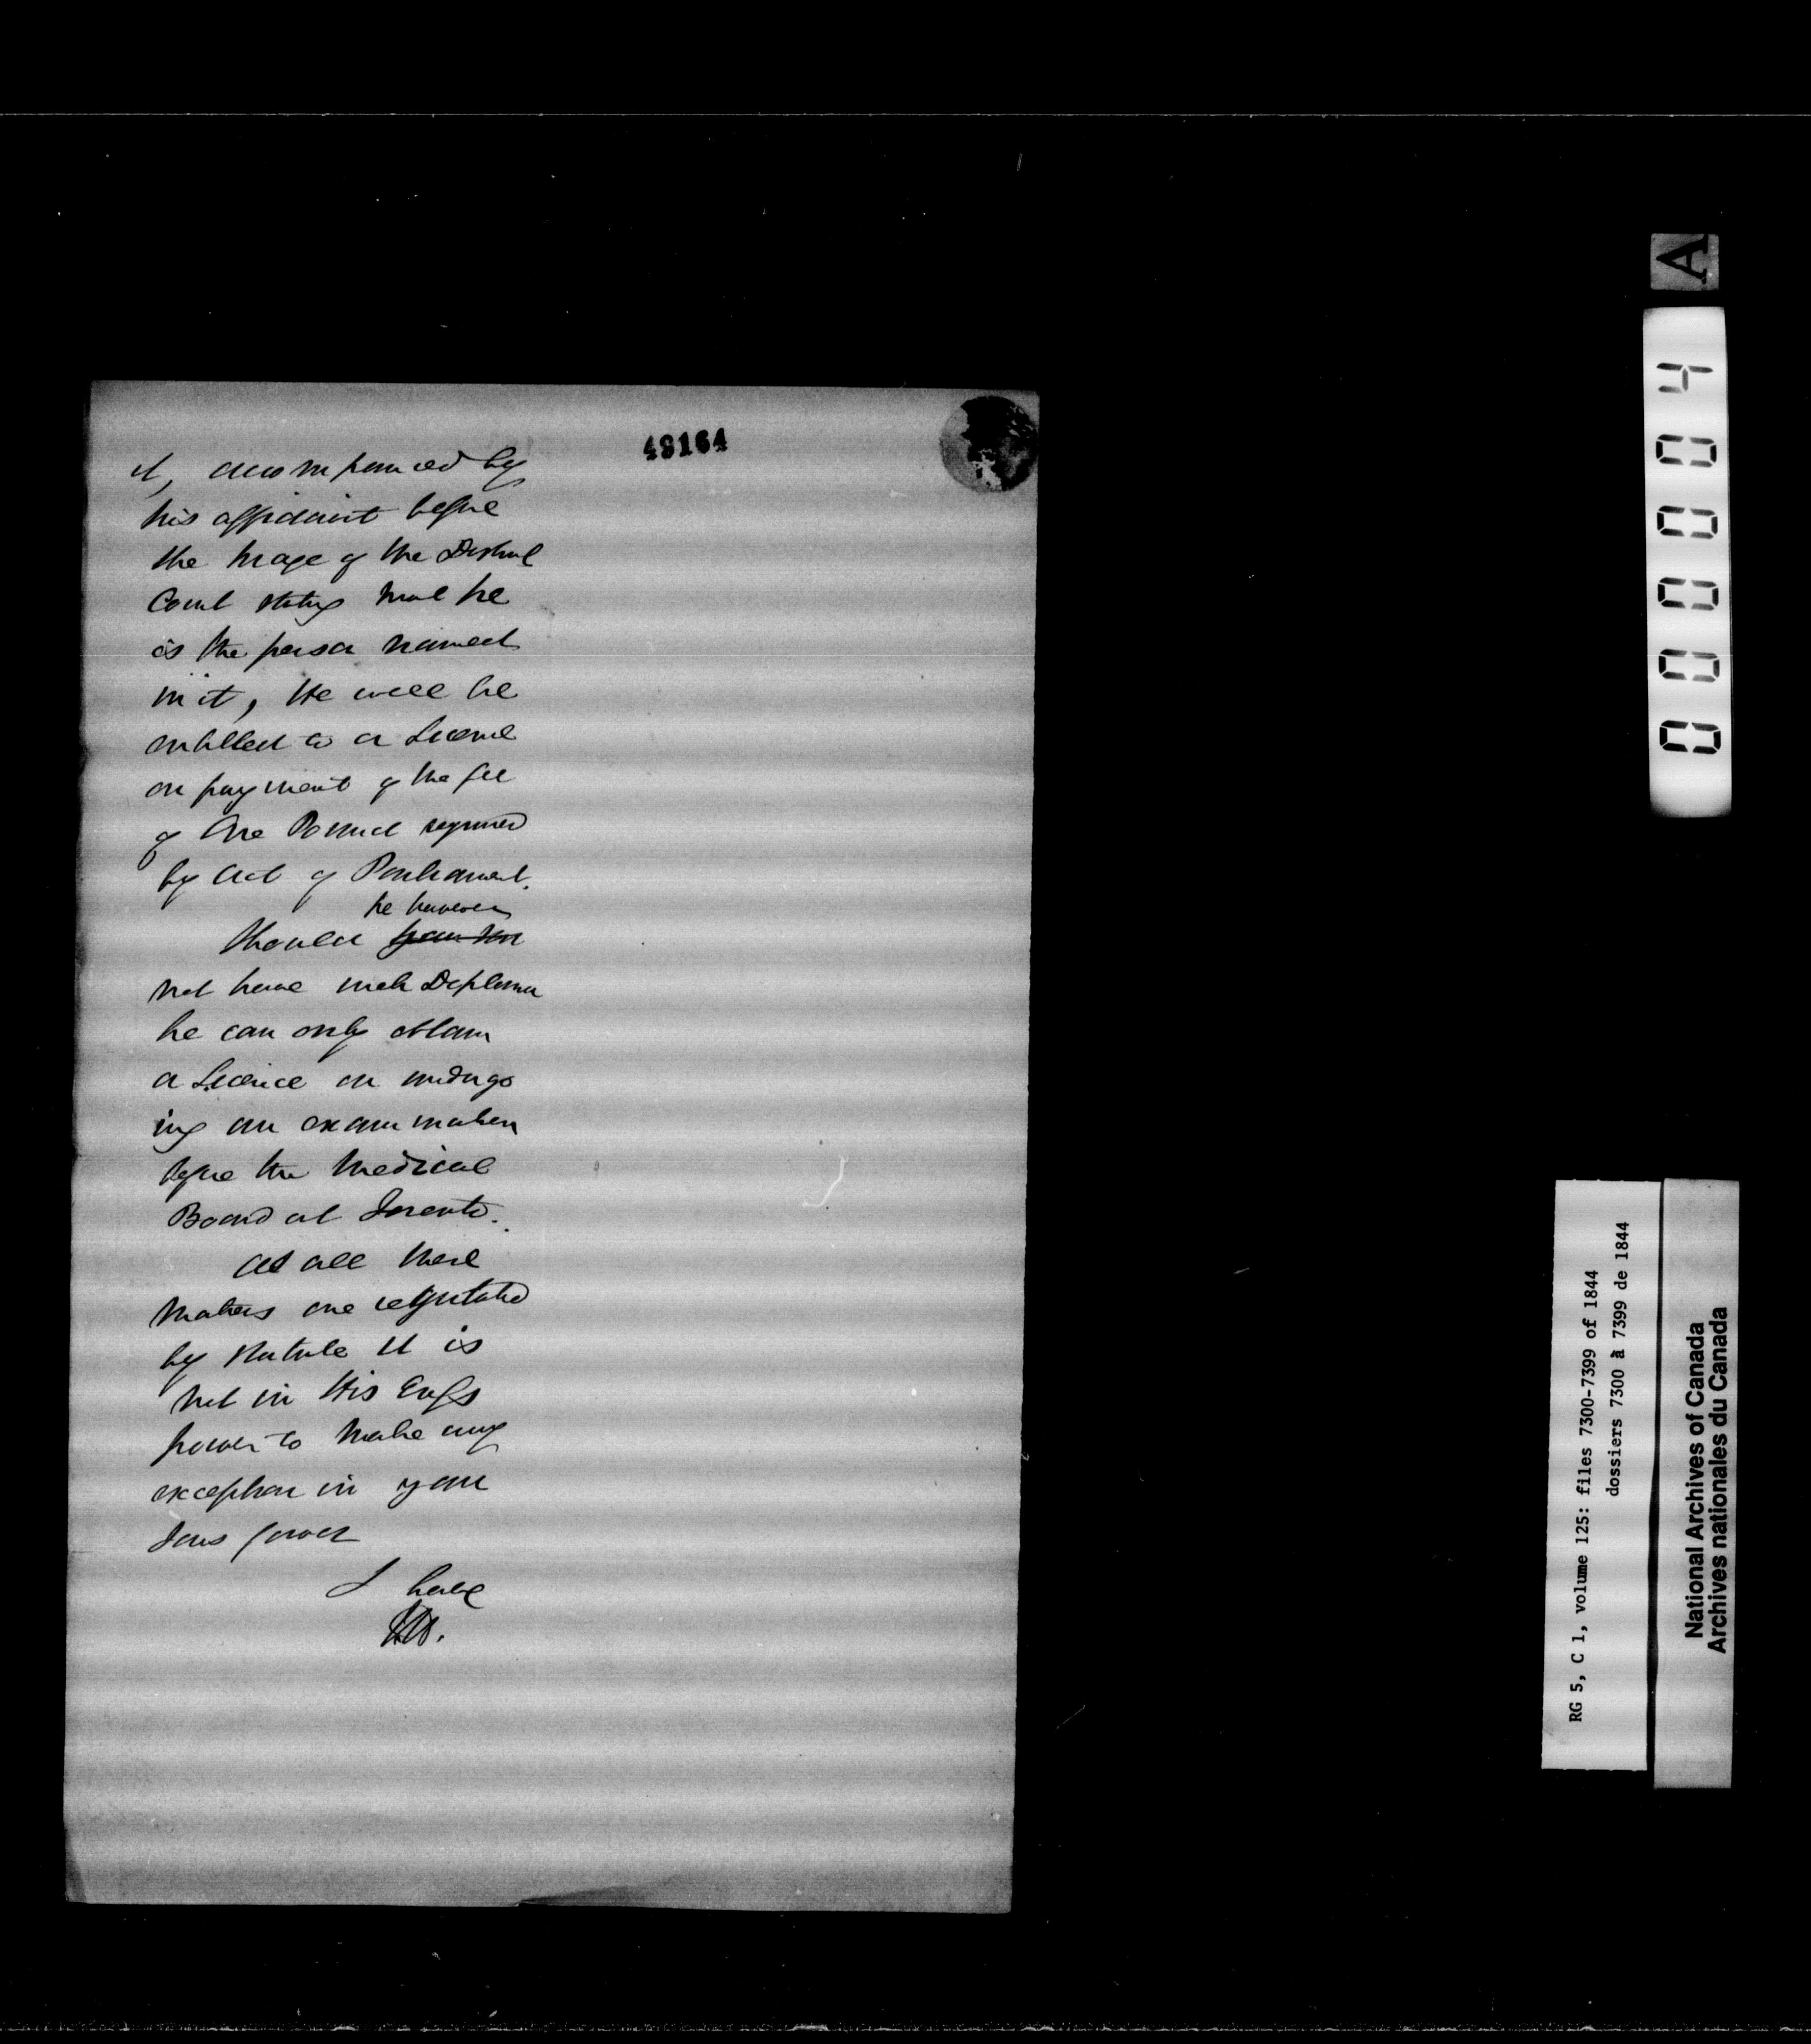 49164
it, accompanied by
his affidavit before
the Judge of the District
Court stating that he
is the person named
in it, He will be
entitled to a Licence
on payment of the fee
of One Pound required
by Act of Parliament.
he however
Should
not have such Diploma
he can only obtain
a Licence on undergo
ing an examination
before the Medical
Board at Toronto.
As all these
matters are regulated
by Statute it is
not in His Excys
power to make any
exception in your
Sons favor
I have
A
000004
RG 5, C 1, volume 125: files 7300-7399 of 1844
dossiers 7300 à 7399 de 1844
National Archives of Canada
Archives nationales du Canada